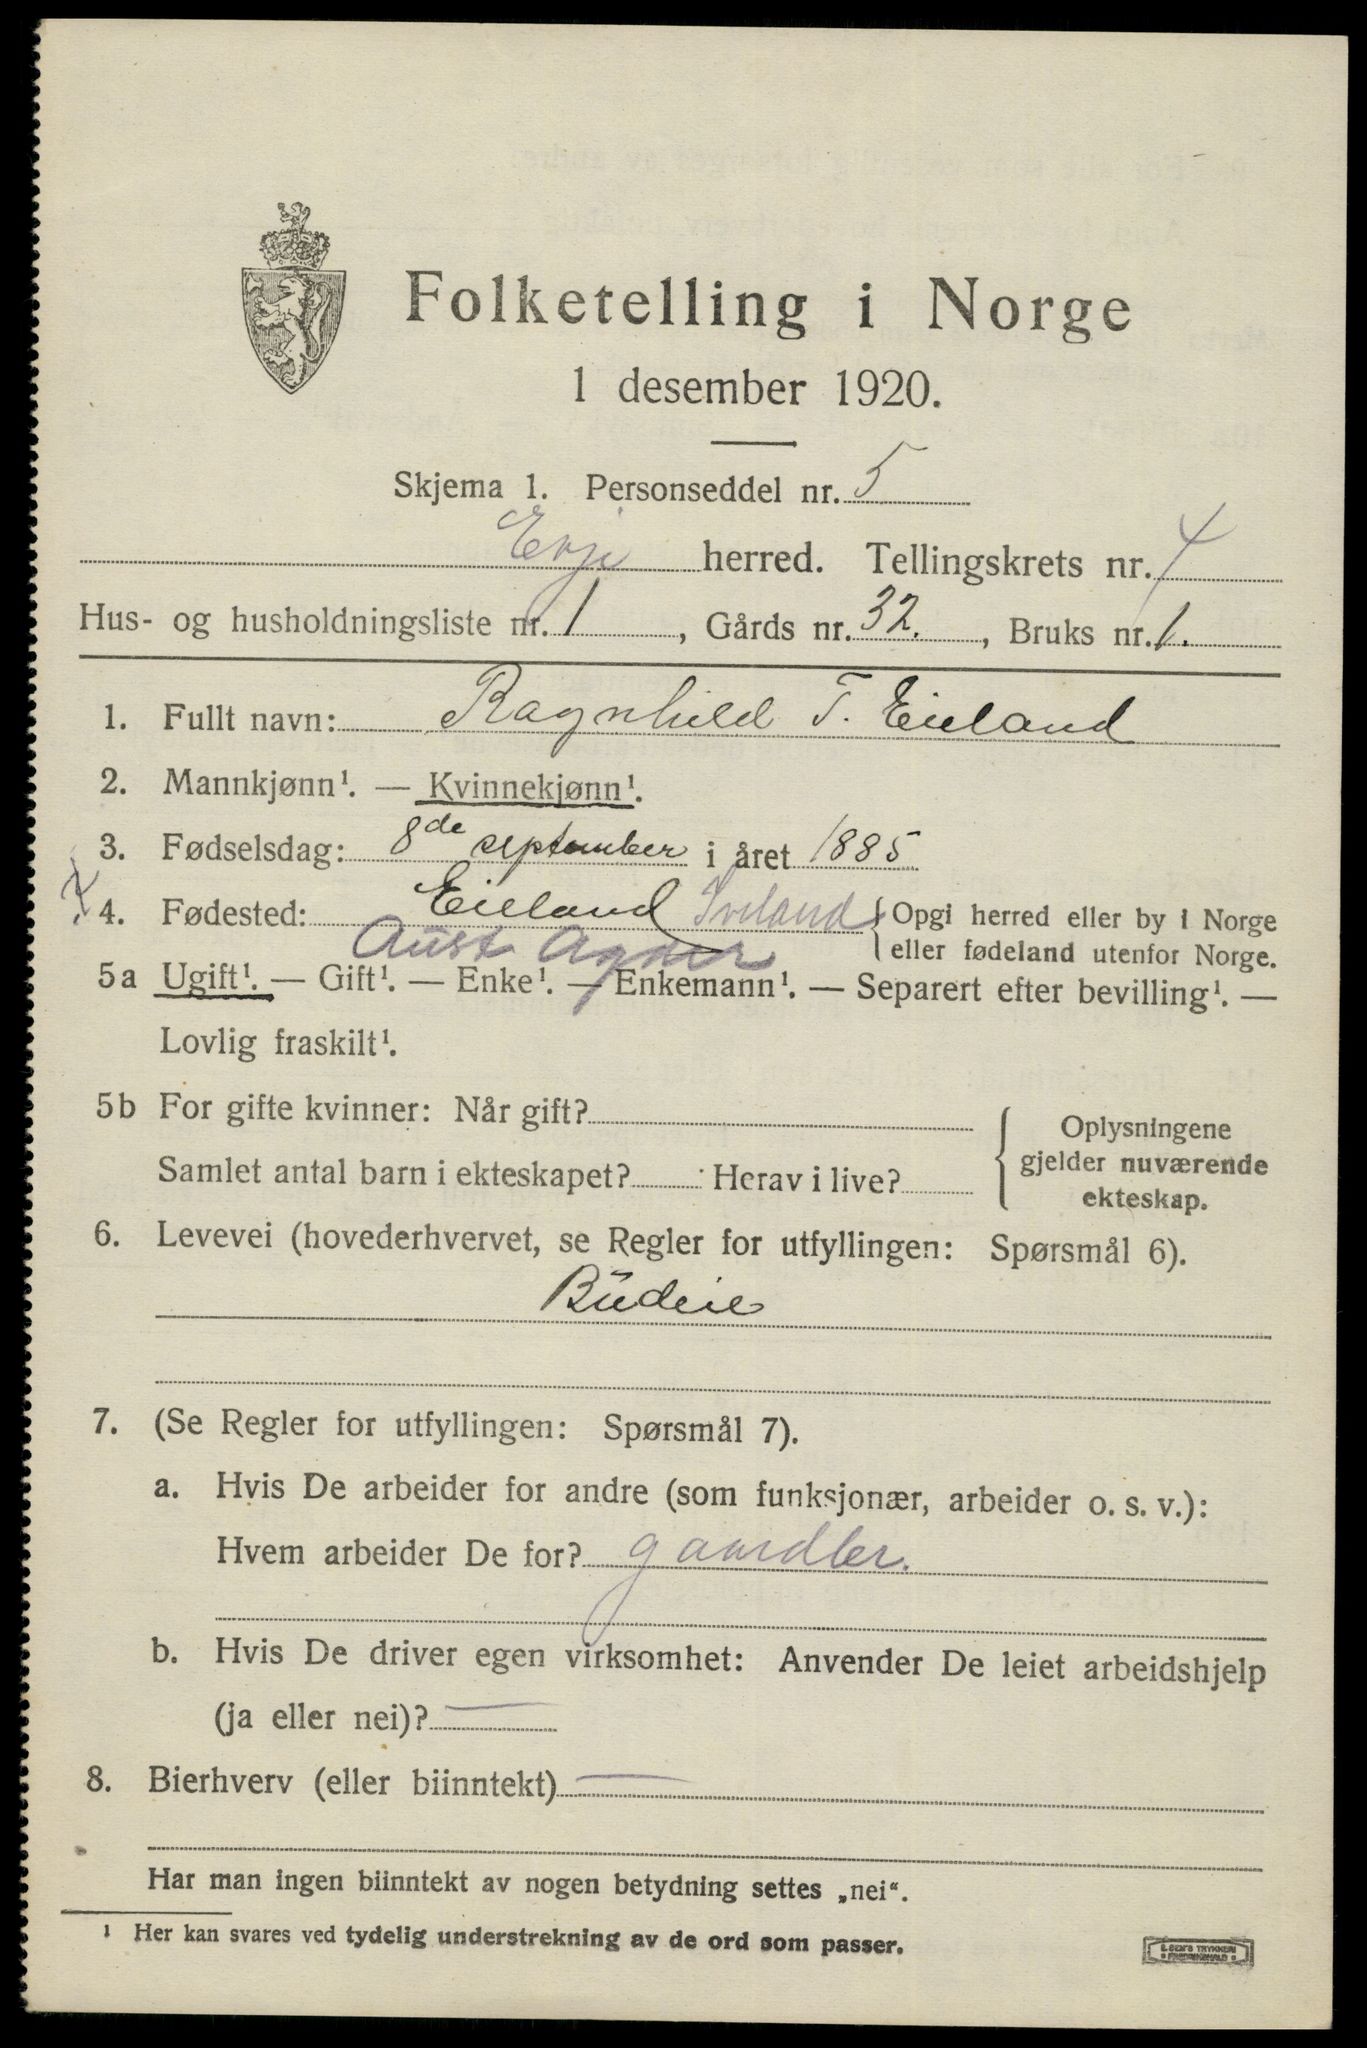 Folketelling i Norge
1 desember 1920.
Skjema 1. Personseddel nr. 5
Evje herred. Tellingskrets nr. 4
Hus- og husholdningsliste nr. 1, Gårds nr. 32., Bruks nr. 1.
1. Fullt navn: Ragnhild T. Eieland
2. Mannkjønn¹. — Kvinnekjønn¹.
3. Fødselsdag: 8de september i året 1885
4. Fødested: Eieland Iveland { Opgi herred eller by i Norge
Aust Agder eller fødeland utenfor Norge.
5a Ugift¹. — Gift¹. — Enke¹. — Enkemann¹. — Separert efter bevilling¹. —
Lovlig fraskilt¹.
5b For gifte kvinner: Når gift?
Samlet antal barn i ekteskapet? Herav i live?
{ Oplysningene
gjelder nuværende
ekteskap.
6. Levevei (hovederhvervet, se Regler for utfyllingen: Spørsmål 6).
Budeie
7. (Se Regler for utfyllingen: Spørsmål 7).
a. Hvis De arbeider for andre (som funksjonær, arbeider o. s. v.):
Hvem arbeider De for? gaardbr.
b. Hvis De driver egen virksomhet: Anvender De leiet arbeidshjelp
(ja eller nei)? —
8. Bierhverv (eller biinntekt) —
Har man ingen biinntekt av nogen betydning settes „nei“.
¹ Her kan svares ved tydelig understrekning av de ord som passer.